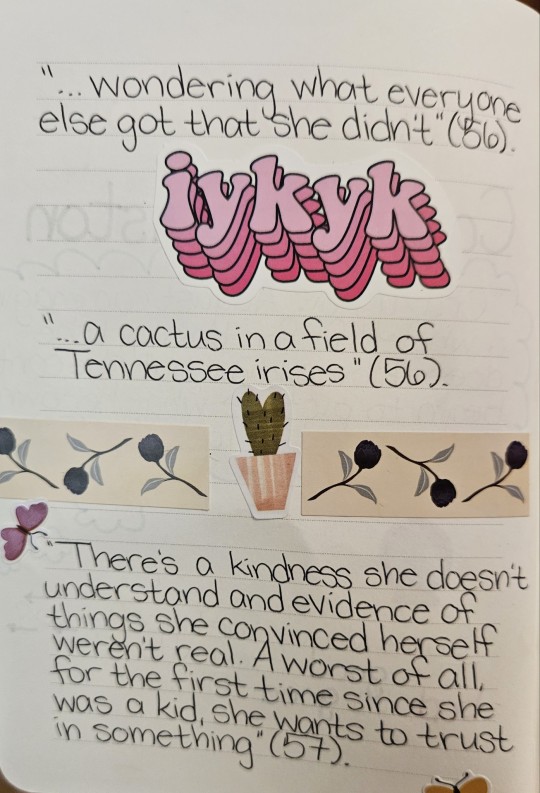 "... wondering what everyone
else got that she didn't" (56).
iykyk
"...a cactus in a field of
Tennessee irises" (56).
"There's a kindness she doesn't
understand and evidence of
things she convinced herself
weren't real. A worst of all,
for the first time since she
was a kid, she wants to trust
in something" (57).